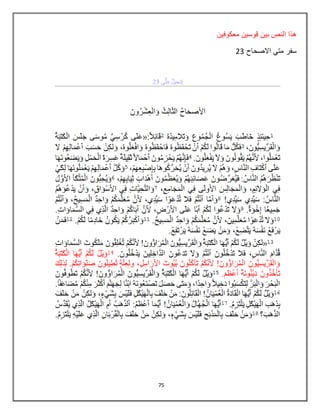 هذا النص بين قوسين معكوفين
سفر متي الاصحاح 23
إِنْجِيلُ مَتَّى 23
الأصحَاحُ الثَّالِثُ وَالْعِشْرُونَ
1حِينَئِذٍ خَاطَبَ يَسُوعُ الْجُمُوعَ وَتَلاَمِيذَهُ 2قَائِلاً: «عَلَى كُرْسِيِّ مُوسَى جَلَسَ الْكَتَبَةُ
وَالْفَرِّيسِيُّونَ، 3فَكُلُّ مَا قَالُوا لَكُمْ أَنْ تَحْفَظُوهُ فَاحْفَظُوهُ وَافْعَلُوهُ، وَلكِنْ حَسَبَ أَعْمَالِهِمْ لاَ
تَعْمَلُوا، لأَنَّهُمْ يَقُولُونَ وَلاَ يَفْعَلُونَ. 4فَإِنَّهُمْ يَحْزِمُونَ أَحْمَالاً ثَقِيلَةً عَسِرَةَ الْحَمْلِ وَيَضَعُونَهَا
عَلَى أَكْتَافِ النَّاسِ، وَهُمْ لاَ يُرِيدُونَ أَنْ يُحَرِّكُوهَا بِإِصْبِعِهِمْ، 5وَكُلَّ أَعْمَالِهِمْ يَعْمَلُونَهَا لِكَيْ
تَنْظُرَهُمُ النَّاسُ: فَيُعَرِّضُونَ عَصَائِبَهُمْ وَيُعَظِّمُونَ أَهْدَابَ ثِيَابِهِمْ، 6وَيُحِبُّونَ الْمُتَّكَأَ الأَوَّلَ
فِي الْوَلاَئِمِ، وَالْمَجَالِسَ الأُولَى فِي الْمَجَامِعِ، 7وَالتَّحِيَّاتِ فِي الأَسْوَاقِ، وَأَنْ يَدْعُوَهُمُ
النَّاسُ: سَيِّدِي سَيِّدِي! 8وَأَمَّا أَنْتُمْ فَلاَ تُدْعَوْا سَيِّدِي، لأَنَّ مُعَلِّمَكُمْ وَاحِدٌ الْمَسِيحُ، وَأَنْتُمْ
جَمِيعًا إِخْوَةٌ. 9وَلاَ تَدْعُوا لَكُمْ أَبًا عَلَى الأَرْضِ، لأَنَّ أَبَاكُمْ وَاحِدٌ الَّذِي فِي السَّمَاوَاتِ.
10وَلاَ تُدْعَوْا مُعَلِّمِينَ، لأَنَّ مُعَلِّمَكُمْ وَاحِدٌ الْمَسِيحُ. 11وَأَكْبَرُكُمْ يَكُونُ خَادِمًا لَكُمْ. 12فَمَنْ
يَرْفَعْ نَفْسَهُ يَتَّضِعْ، وَمَنْ يَضَعْ نَفْسَهُ يَرْتَفِعْ.
13«لكِنْ وَيْلٌ لَكُمْ أَيُّهَا الْكَتَبَةُ وَالْفَرِّيسِيُّونَ الْمُرَاؤُونَ! لأَنَّكُمْ تُغْلِقُونَ مَلَكُوتَ السَّمَاوَاتِ
قُدَّامَ النَّاسِ، فَلاَ تَدْخُلُونَ أَنْتُمْ وَلاَ تَدَعُونَ الدَّاخِلِينَ يَدْخُلُونَ. 14وَيْلٌ لَكُمْ أَيُّهَا الْكَتَبَةُ
وَالْفَرِّيسِيُّونَ الْمُرَاؤُونَ! لأَنَّكُمْ تَأْكُلُونَ بُيُوتَ الأَرَامِلِ، ولِعِلَّةٍ تُطِيلُونَ صَلَوَاتِكُمْ. لِذلِكَ
تَأْخُذُونَ دَيْنُونَةً أَعْظَمَ. 15وَيْلٌ لَكُمْ أَيُّهَا الْكَتَبَةُ وَالْفَرِّيسِيُّونَ الْمُرَاؤُونَ! لأَنَّكُمْ تَطُوفُونَ
الْبَحْرَ وَالْبَرَّ لِتَكْسَبُوا دَخِيلاً وَاحِدًا، وَمَتَى حَصَلَ تَصْنَعُونَهُ ابْنًا لِجَهَنَّمَ أَكْثَرَ مِنْكُمْ مُضَاعَفًا.
16وَيْلٌ لَكُمْ أَيُّهَا الْقَادَةُ الْعُمْيَانُ! الْقَائِلُونَ: مَنْ حَلَفَ بِالْهَيْكَلِ فَلَيْسَ بِشَيْءٍ، وَلكِنْ مَنْ حَلَفَ
بِذَهَب الْهَيْكَلِ يَلْتَزِمُ. 17أَيُّهَا الْجُهَّالُ وَالْعُمْيَانُ! أَيُّمَا أَعْظَمُ: أَلذَّهَبُ أَمِ الْهَيْكَلُ الَّذِي يُقَدِّسُ
الذَّهَبَ؟ 18وَمَنْ حَلَفَ بِالْمَذْبَحِ فَلَيْسَ بِشَيْءٍ، وَلكِنْ مَنْ حَلَفَ بِالْقُرْبَانِ الَّذِي عَلَيْهِ يَلْتَزِمُ.
75